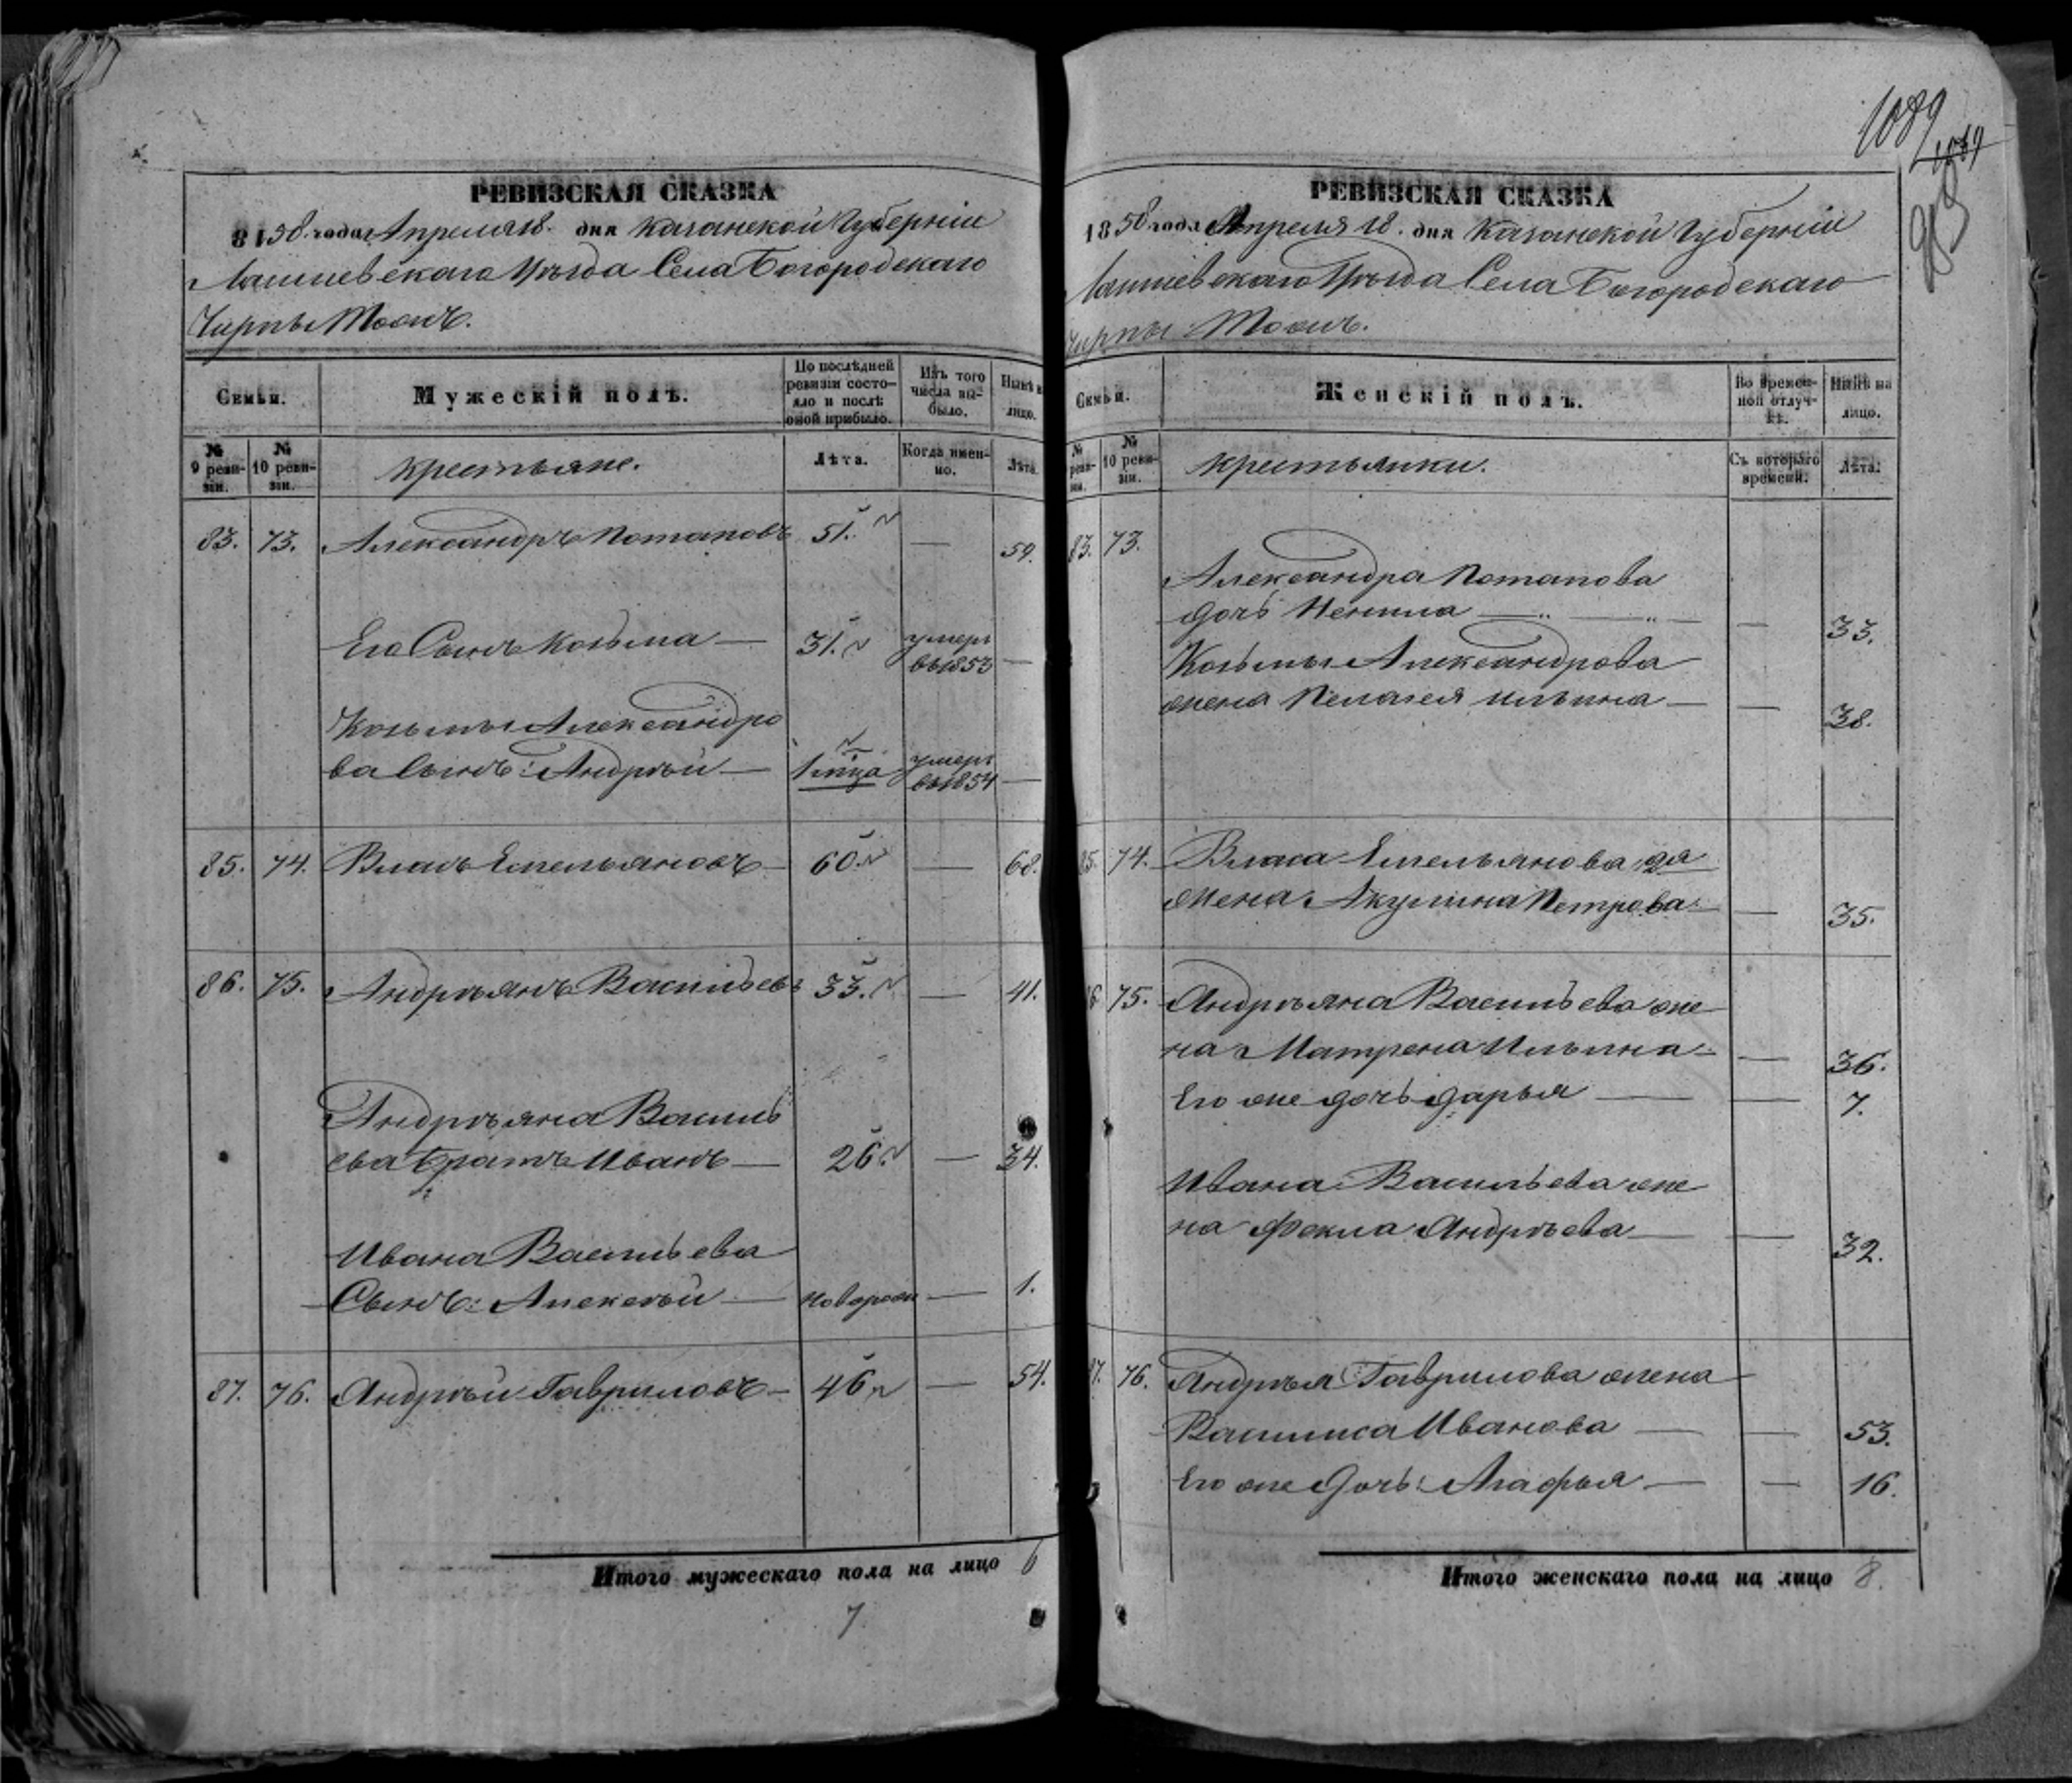 РЕВИЗСКАЯ СКАЗКА
1858 года Апреля 18. дня Казанской Губерніи
Лаишевскаго Уѣзда Села Богородскаго
Чирпы Тожъ.
Семьи.
Мужескій полъ.
По послѣдней ревизіи состояло и послѣ оной прибыло.
Изъ того числа выбыло.
Нынѣ на лицо.
№ 9 ревизіи.
№ 10 ревизіи.
Крестьяне.
Лѣта.
Когда именно.
Лѣта.
83. 73. Александръ Потаповъ 51. — 59.
Его Сынъ Козьма — 31. умеръ въ 1853 —
Козьмы Александро
ва Сынъ: Андрѣй — 1 мца умеръ въ 1854 —
85. 74. Власъ Емельяновъ — 60. — 68.
86. 75. Андрѣянъ Васильевъ 33. — 41.
Андрѣяна Василь
ева братъ Иванъ — 26. — 34.
Ивана Васильева
Сынъ: Алексѣй — новорож — 1.
87. 76. Андрѣй Гавриловъ — 46 — 54.
Итого мужескаго пола на лицо 6
7
1089
РЕВИЗСКАЯ СКАЗКА
1858 года Апреля 18. дня Казанской Губерніи
Лаишевскаго Уѣзда Села Богородскаго
Чирпы Тожъ.
Семьи.
Женскій полъ.
Во временной отлучкѣ.
Нынѣ на лицо.
№ реви-зіи.
№ 10 ревизіи.
Крестьянки.
Съ котораго времени.
Лѣта.
83. 73.
Александра Потапова
дочь Ненила — " — " — — 33.
Козьмы Александрова
жена Пелагея Ильина — — 38.
85. 74. Власа Емельянова 2я
жена Акулина Петрова — — 35.
86 75. Андрѣяна Васильева же
на Матрена Ильина — — 36.
Его же дочь Дарья — — 7.
Ивана Васильева же
на Фекла Андрѣева — — 32.
87. 76. Андрѣя Гаврилова жена
Василиса Иванова — — 53.
Его же Дочь: Агафья — — 16.
Итого женскаго пола на лицо 8.